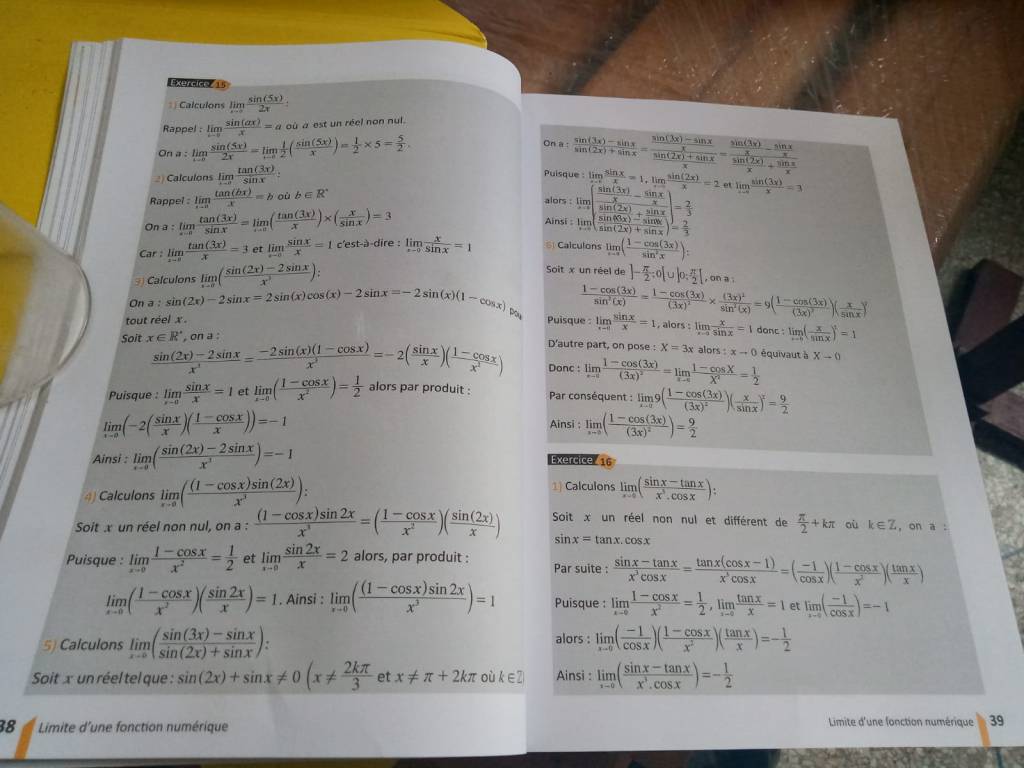 Exercice 15
1) Calculons lim_{x→0} sin(5x)/2x :
Rappel : lim_{x→0} sin(ax)/x = a où a est un réel non nul.
On a : lim_{x→0} sin(5x)/2x = lim_{x→0} 1/2 (sin(5x)/x) = 1/2 × 5 = 5/2.
2) Calculons lim_{x→0} tan(3x)/sin x :
Rappel : lim_{x→0} tan(bx)/x = b où b ∈ ℝ*
On a : lim_{x→0} tan(3x)/sin x = lim_{x→0} (tan(3x)/x) × (x/sin x) = 3
Car : lim_{x→0} tan(3x)/x = 3 et lim_{x→0} sin x/x = 1 c'est-à-dire : lim_{x→0} x/sin x = 1
3) Calculons lim_{x→0} (sin(2x) − 2 sin x / x³) :
On a : sin(2x) − 2 sin x = 2 sin(x) cos(x) − 2 sin x = −2 sin(x)(1 − cos x), pour
tout réel x.
Soit x ∈ ℝ*, on a :
sin(2x) − 2 sin x / x³ = −2 sin(x)(1 − cos x) / x³ = −2 (sin x/x)(1 − cos x / x²)
Puisque : lim_{x→0} sin x/x = 1 et lim_{x→0} (1 − cos x / x²) = 1/2 alors par produit :
lim_{x→0} (−2 (sin x/x)(1 − cos x / x)) = −1
Ainsi : lim_{x→0} (sin(2x) − 2 sin x / x³) = −1
4) Calculons lim_{x→0} ((1 − cos x) sin(2x) / x³) :
Soit x un réel non nul, on a : (1 − cos x) sin 2x / x³ = (1 − cos x / x²)(sin(2x)/x)
Puisque : lim_{x→0} 1 − cos x / x² = 1/2 et lim_{x→0} sin 2x / x = 2 alors, par produit :
lim_{x→0} (1 − cos x / x²)(sin 2x / x) = 1. Ainsi : lim_{x→0} ((1 − cos x) sin 2x / x³) = 1
5) Calculons lim_{x→0} (sin(3x) − sin x / sin(2x) + sin x) :
Soit x un réel tel que : sin(2x) + sin x ≠ 0 (x ≠ 2kπ/3 et x ≠ π + 2kπ où k ∈ ℤ
38 Limite d'une fonction numérique
On a : sin(3x) − sin x / sin(2x) + sin x = (sin(3x) − sin x / x) / (sin(2x) + sin x / x) = (sin(3x)/x − sin x/x) / (sin(2x)/x + sin x/x)
Puisque : lim_{x→0} sin x/x = 1, lim_{x→0} sin(2x)/x = 2 et lim_{x→0} sin(3x)/x = 3
alors : lim_{x→0} ((sin(3x)/x − sin x/x) / (sin(2x)/x + sin x/x)) = 2/3
Ainsi : lim_{x→0} (sin(3x) − sin x / sin(2x) + sin x) = 2/3
6) Calculons lim_{x→0} (1 − cos(3x) / sin² x) :
Soit x un réel de ]−π/2 ; 0[ ∪ ]0 ; π/2[, on a :
1 − cos(3x) / sin²(x) = 1 − cos(3x) / (3x)² × (3x)² / sin²(x) = 9 (1 − cos(3x) / (3x)²)(x/sin x)²
Puisque : lim_{x→0} sin x/x = 1, alors : lim_{x→0} x/sin x = 1 donc : lim_{x→0} (x/sin x)² = 1
D'autre part, on pose : X = 3x alors : x → 0 équivaut à X → 0
Donc : lim_{x→0} 1 − cos(3x) / (3x)² = lim_{X→0} 1 − cos X / X² = 1/2
Par conséquent : lim_{x→0} 9 (1 − cos(3x) / (3x)²)(x/sin x)² = 9/2
Ainsi : lim_{x→0} (1 − cos(3x) / (3x)²) = 9/2
Exercice 16
1) Calculons lim_{x→0} (sin x − tan x / x³. cos x) :
Soit x un réel non nul et différent de π/2 + kπ où k ∈ ℤ, on a :
sin x = tan x. cos x
Par suite : sin x − tan x / x³ cos x = tan x (cos x − 1) / x³ cos x = (−1/cos x)(1 − cos x / x²)(tan x / x)
Puisque : lim_{x→0} 1 − cos x / x² = 1/2, lim_{x→0} tan x / x = 1 et lim_{x→0} (−1/cos x) = −1
alors : lim_{x→0} (−1/cos x)(1 − cos x / x²)(tan x / x) = −1/2
Ainsi : lim_{x→0} (sin x − tan x / x³. cos x) = −1/2
Limite d'une fonction numérique 39